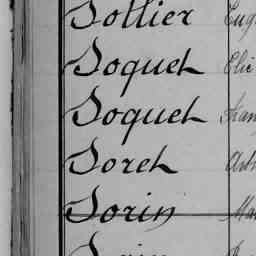 Sollier Eug
Soquet Elie
Soquet Fran
Soret Arth
Sorin Mar